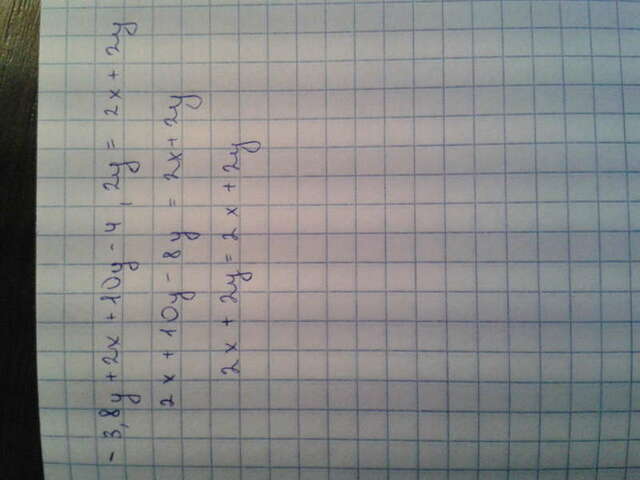 - 3,8y + 2x + 10y - 4,2y = 2x + 2y
2x + 10y - 8y = 2x + 2y
2x + 2y = 2x + 2y